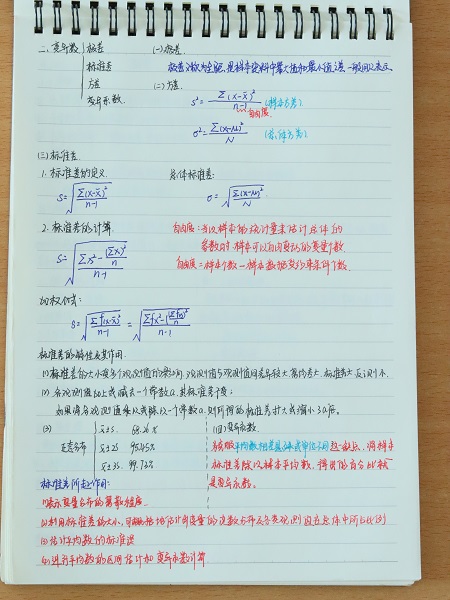 二、变异数 极差 (一)极差
标准差 极差又称为全距,是样本资料中最大值和最小值之差,一般用R表示
方差 (二)方差
变异系数 S²=Σ(x-x̄)²/n-1 (样本方差)
自由度
σ²=Σ(x-μ)²/N (总体方差)
(三)标准差
1.标准差的定义 总体标准差:
S=√Σ(x-x̄)²/n-1 σ=√Σ(x-μ)²/N
2.标准差的计算 自由度:当以样本的统计量来估计总体的
参数时,样本可以自由变动的变量个数
S=√Σx²-(Σx)²/n/n-1 自由度=样本个数-样本数据受约束条件个数
加权式:
S=√Σf(x-x̄)²/n-1=√Σfx²-(Σfx)²/n/n-1
标准差的特性及其作用
(1)标准差的大小受多个观测值的影响,观测值与观测值间差异较大,标准差大,反之则小
(2)各观测值加上或减去一个常数a,其标准差不变;
如果将各观测值乘以或除以一个常数a,则所得的标准差扩大或缩小了a倍。
(3) x̄±S 68.26% (四)变异系数
正态分布 x̄±2S 95.45% 为克服平均数相差悬殊或单位不同这一缺点,将样本
x̄±3S 99.73% 标准差除以样本平均数,得出的百分比就
标准差所起作用: 是变异系数。
(1)表示变量分布的离散程度
(2)利用标准差的大小,可概括地估计出变量的次数分布及各类观测值在总体中所占比例
(3)估计平均数的标准误
(4)进行平均数的区间估计和变异系数计算